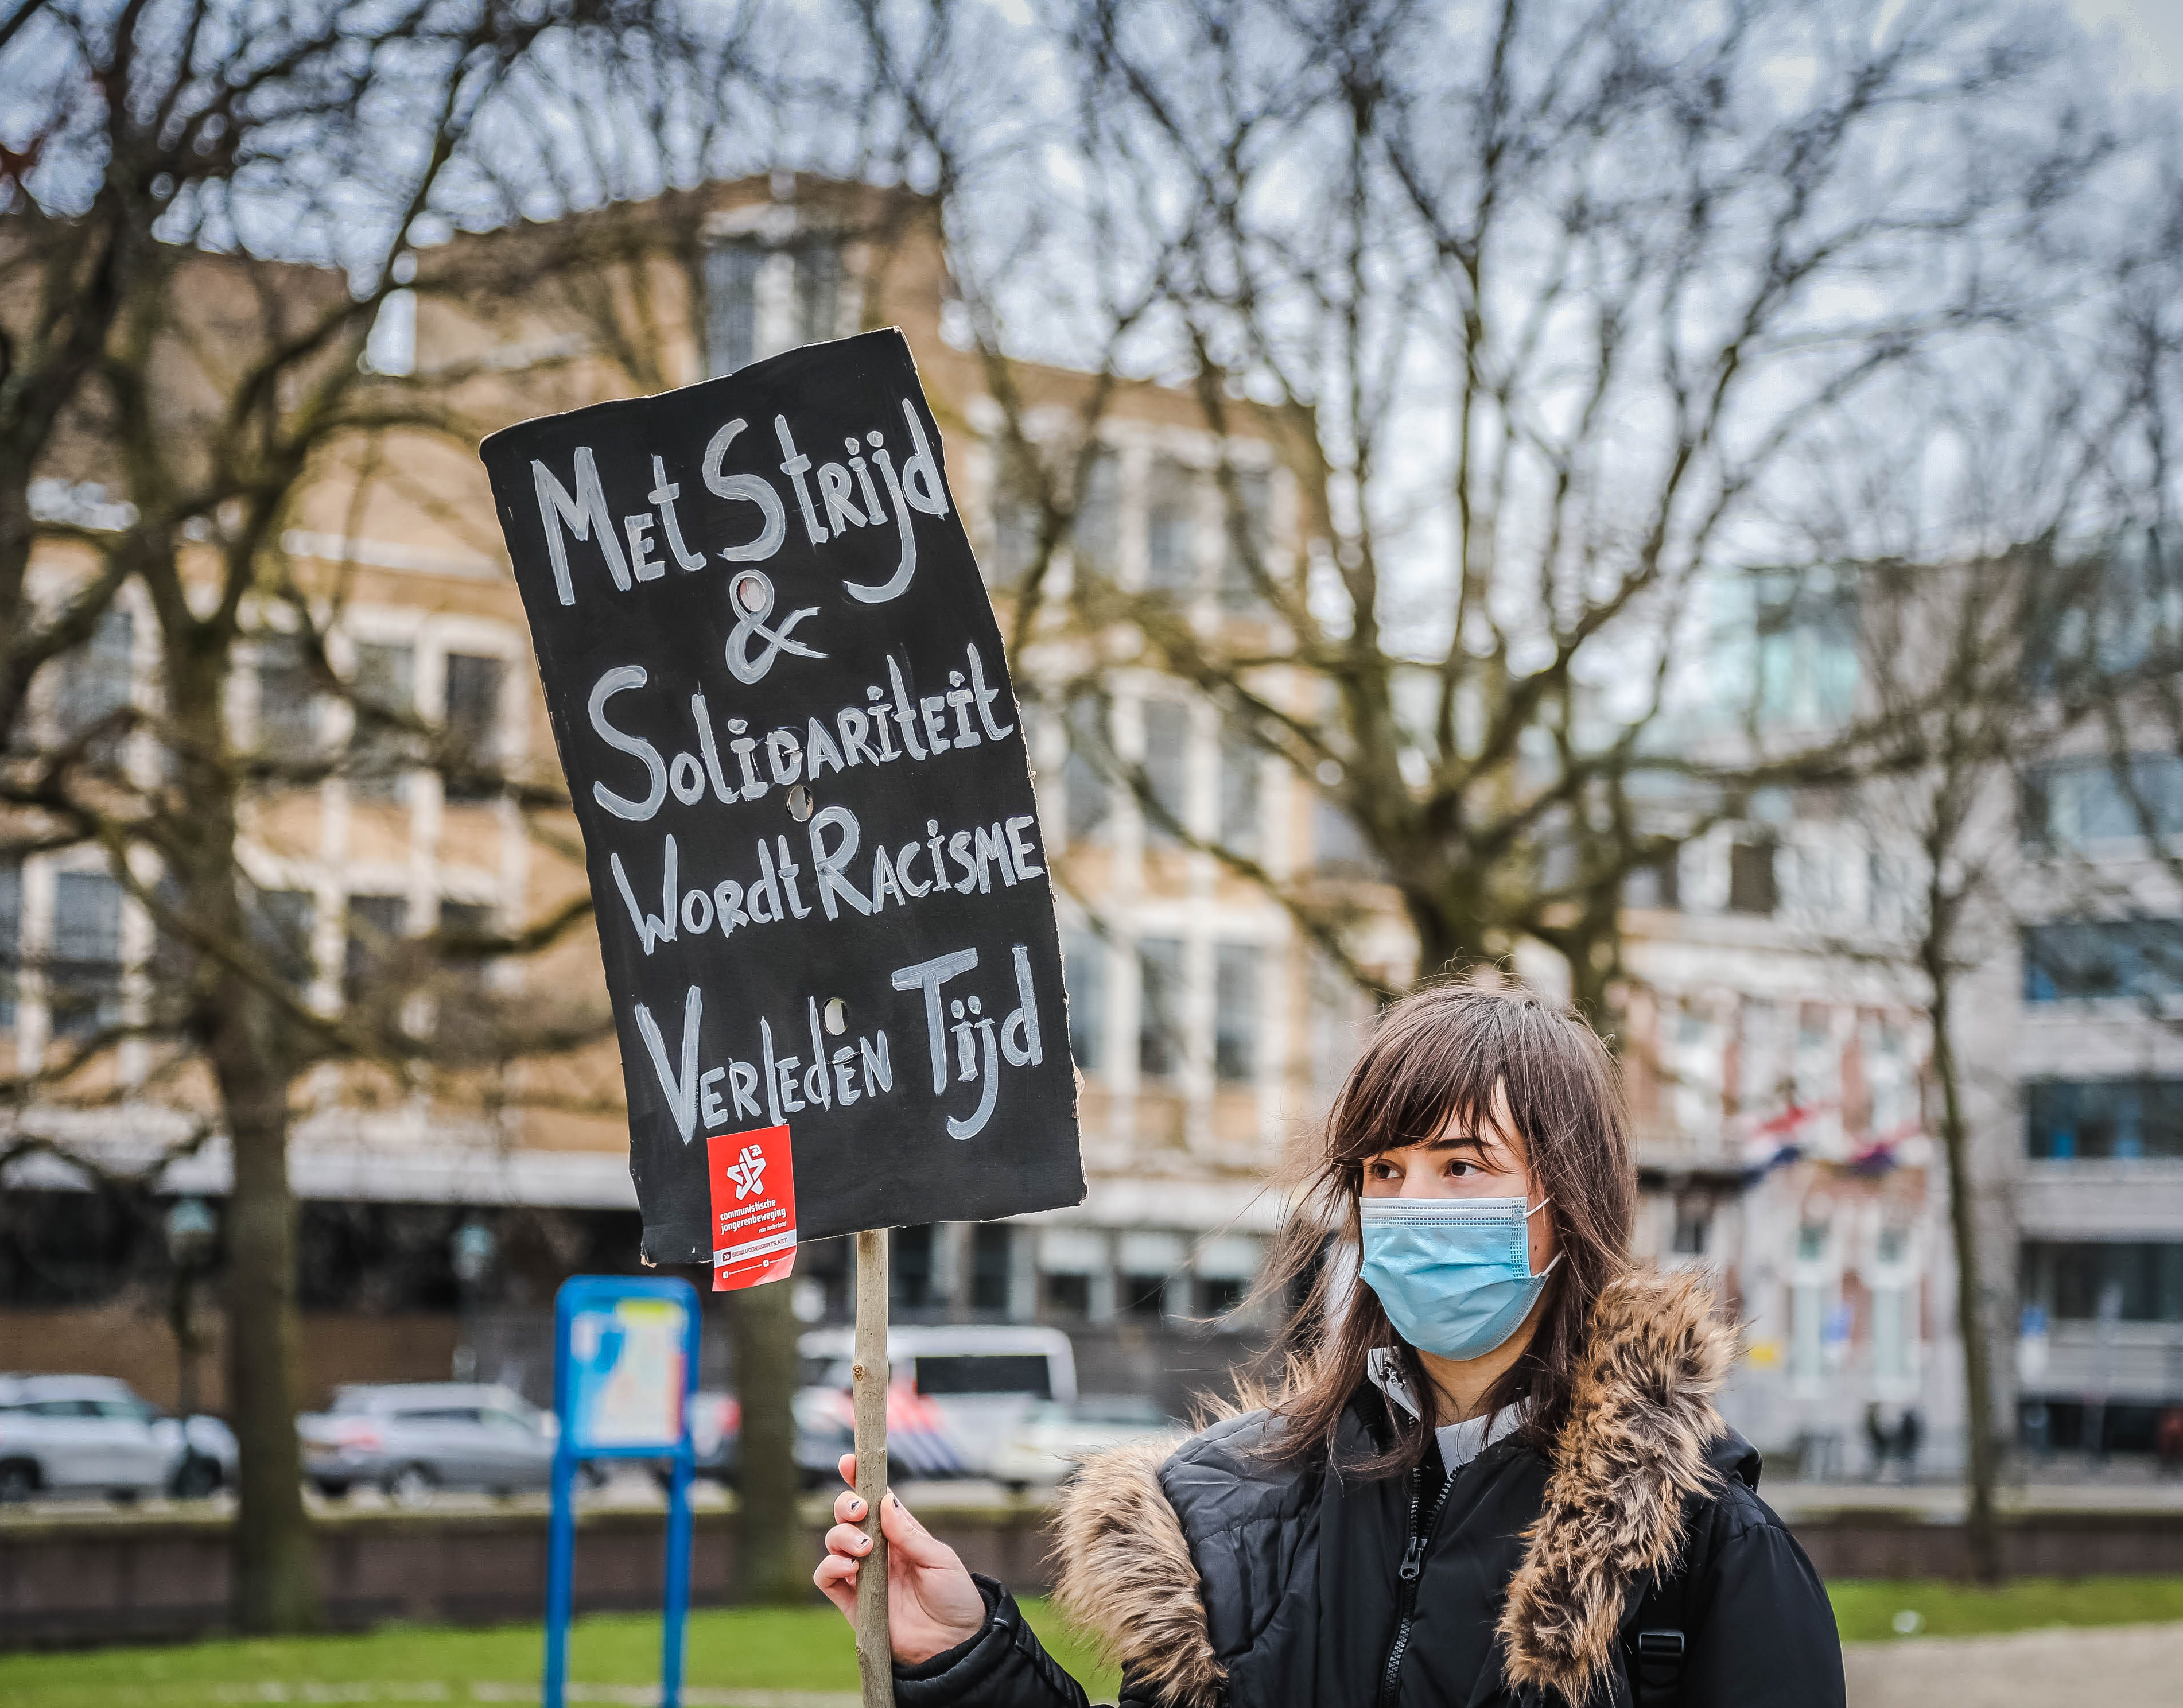 Met Strijd
&
Solidariteit
Wordt Racisme
Verleden Tijd
communistische
jongerenbeweging
van nederland
WWW.VOORWAARTS.NET